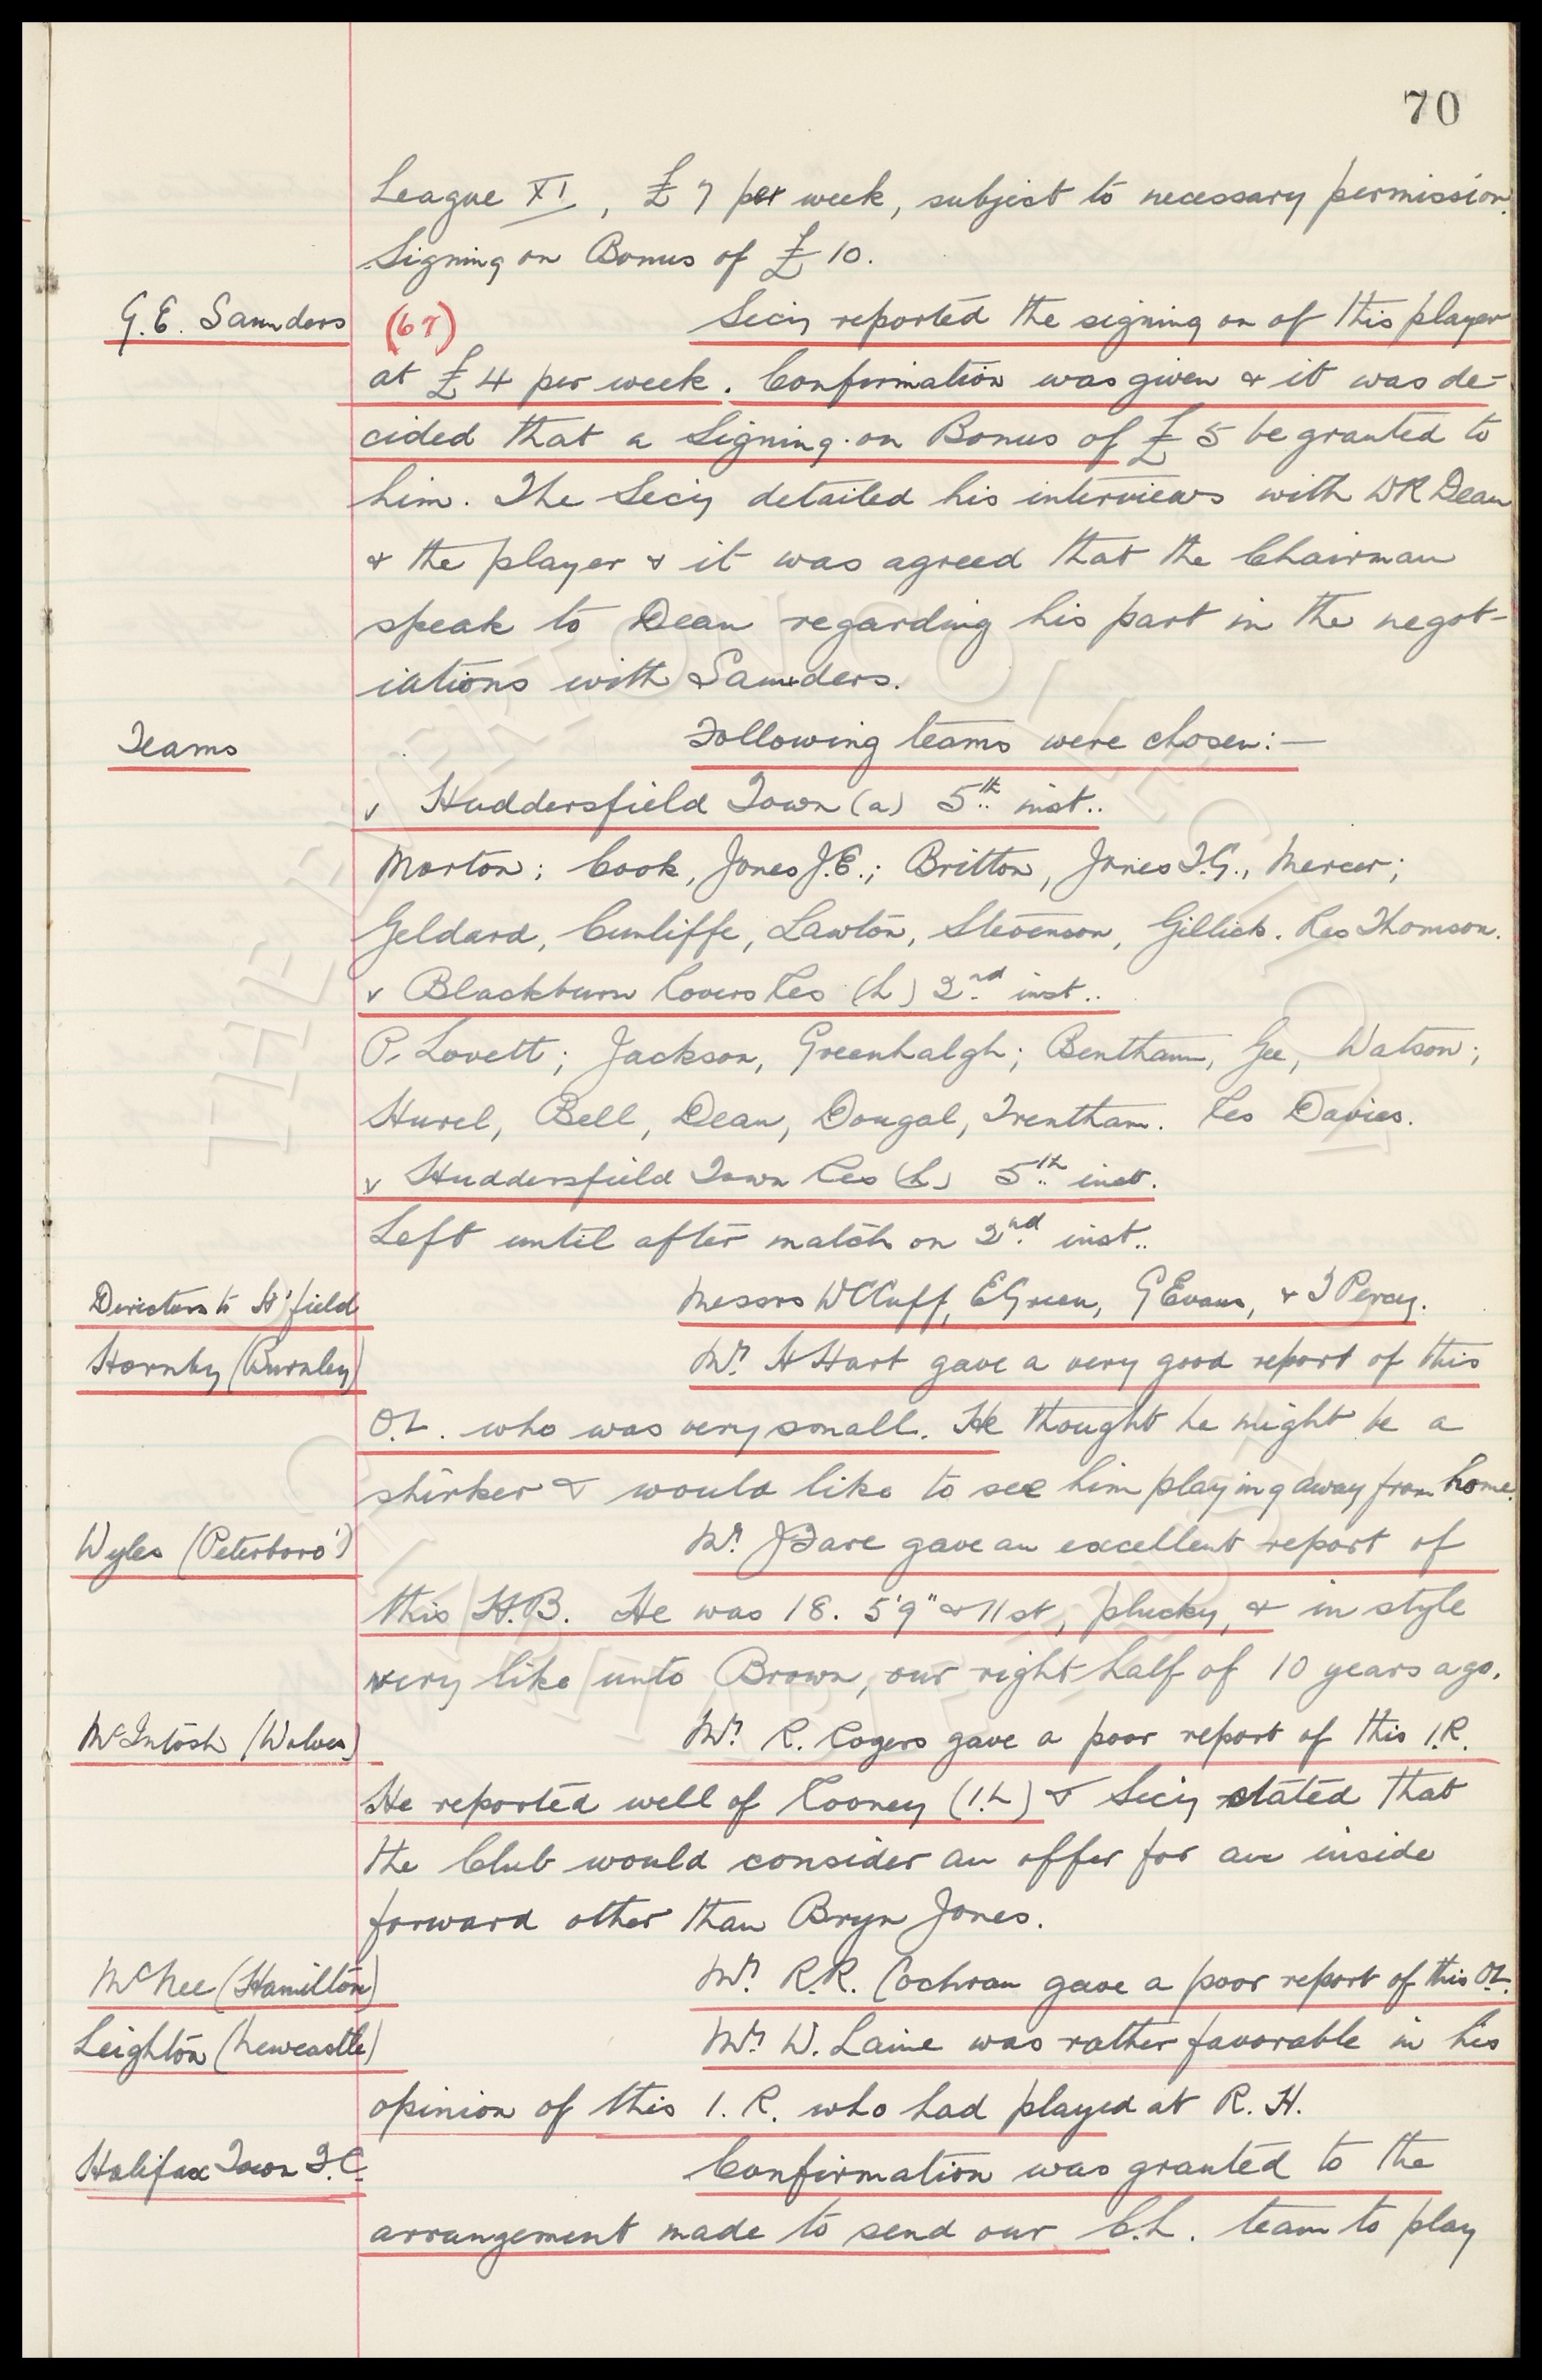 70
League XI, £7 per week, subject to necessary permission.
Signing on Bonus of £10.
G.E. Saunders (67) Secy reported the signing on of this player
at £4 per week. Confirmation was given & it was de-
cided that a Signing-on Bonus of £5 be granted to
him. The Secy detailed his interviews with WR Dean
& the player & it was agreed that the Chairman
speak to Dean regarding his part in the negot-
iations with Saunders.
Teams Following teams were chosen:—
v Huddersfield Town (a) 5th inst..
Morton; Cook, Jones J.E.; Britton, Jones T.G., Mercer;
Geldard, Cunliffe, Lawton, Stevenson, Gillick. Res Thomson.
v Blackburn Rovers Res (h) 2nd inst..
P. Lovett; Jackson, Greenhalgh; Bentham, Gee, Watson;
Hurel, Bell, Dean, Dougal, Trentham. Res Davies.
v Huddersfield Town Res (h) 5th inst.
Left until after match on 2nd inst..
Directors to H'field Messrs WCCuff, EGreen, GEvans, & TPercy.
Hornby (Burnley) Mr. HHart gave a very good report of this
O.L. who was very small. He thought he might be a
shirker & would like to see him playing away from home.
Wyles (Peterboro') Mr. JFare gave an excellent report of
this H.B. He was 18. 5'9" & 11st, plucky, & in style
very like unto Brown, our right half of 10 years ago.
McIntosh (Wolves) Mr. R. Rogers gave a poor report of this I.R.
He reported well of Rooney (I.L) & Secy stated that
the Club would consider an offer for an inside
forward other than Bryn Jones.
McNee (Hamilton) Mr. R.R. Cochran gave a poor report of this OL.
Leighton (Newcastle) Mr. W. Laine was rather favorable in his
opinion of this I.R. who had played at R.H.
Halifax Town F.C. Confirmation was granted to the
arrangement made to send our C.L. team to play